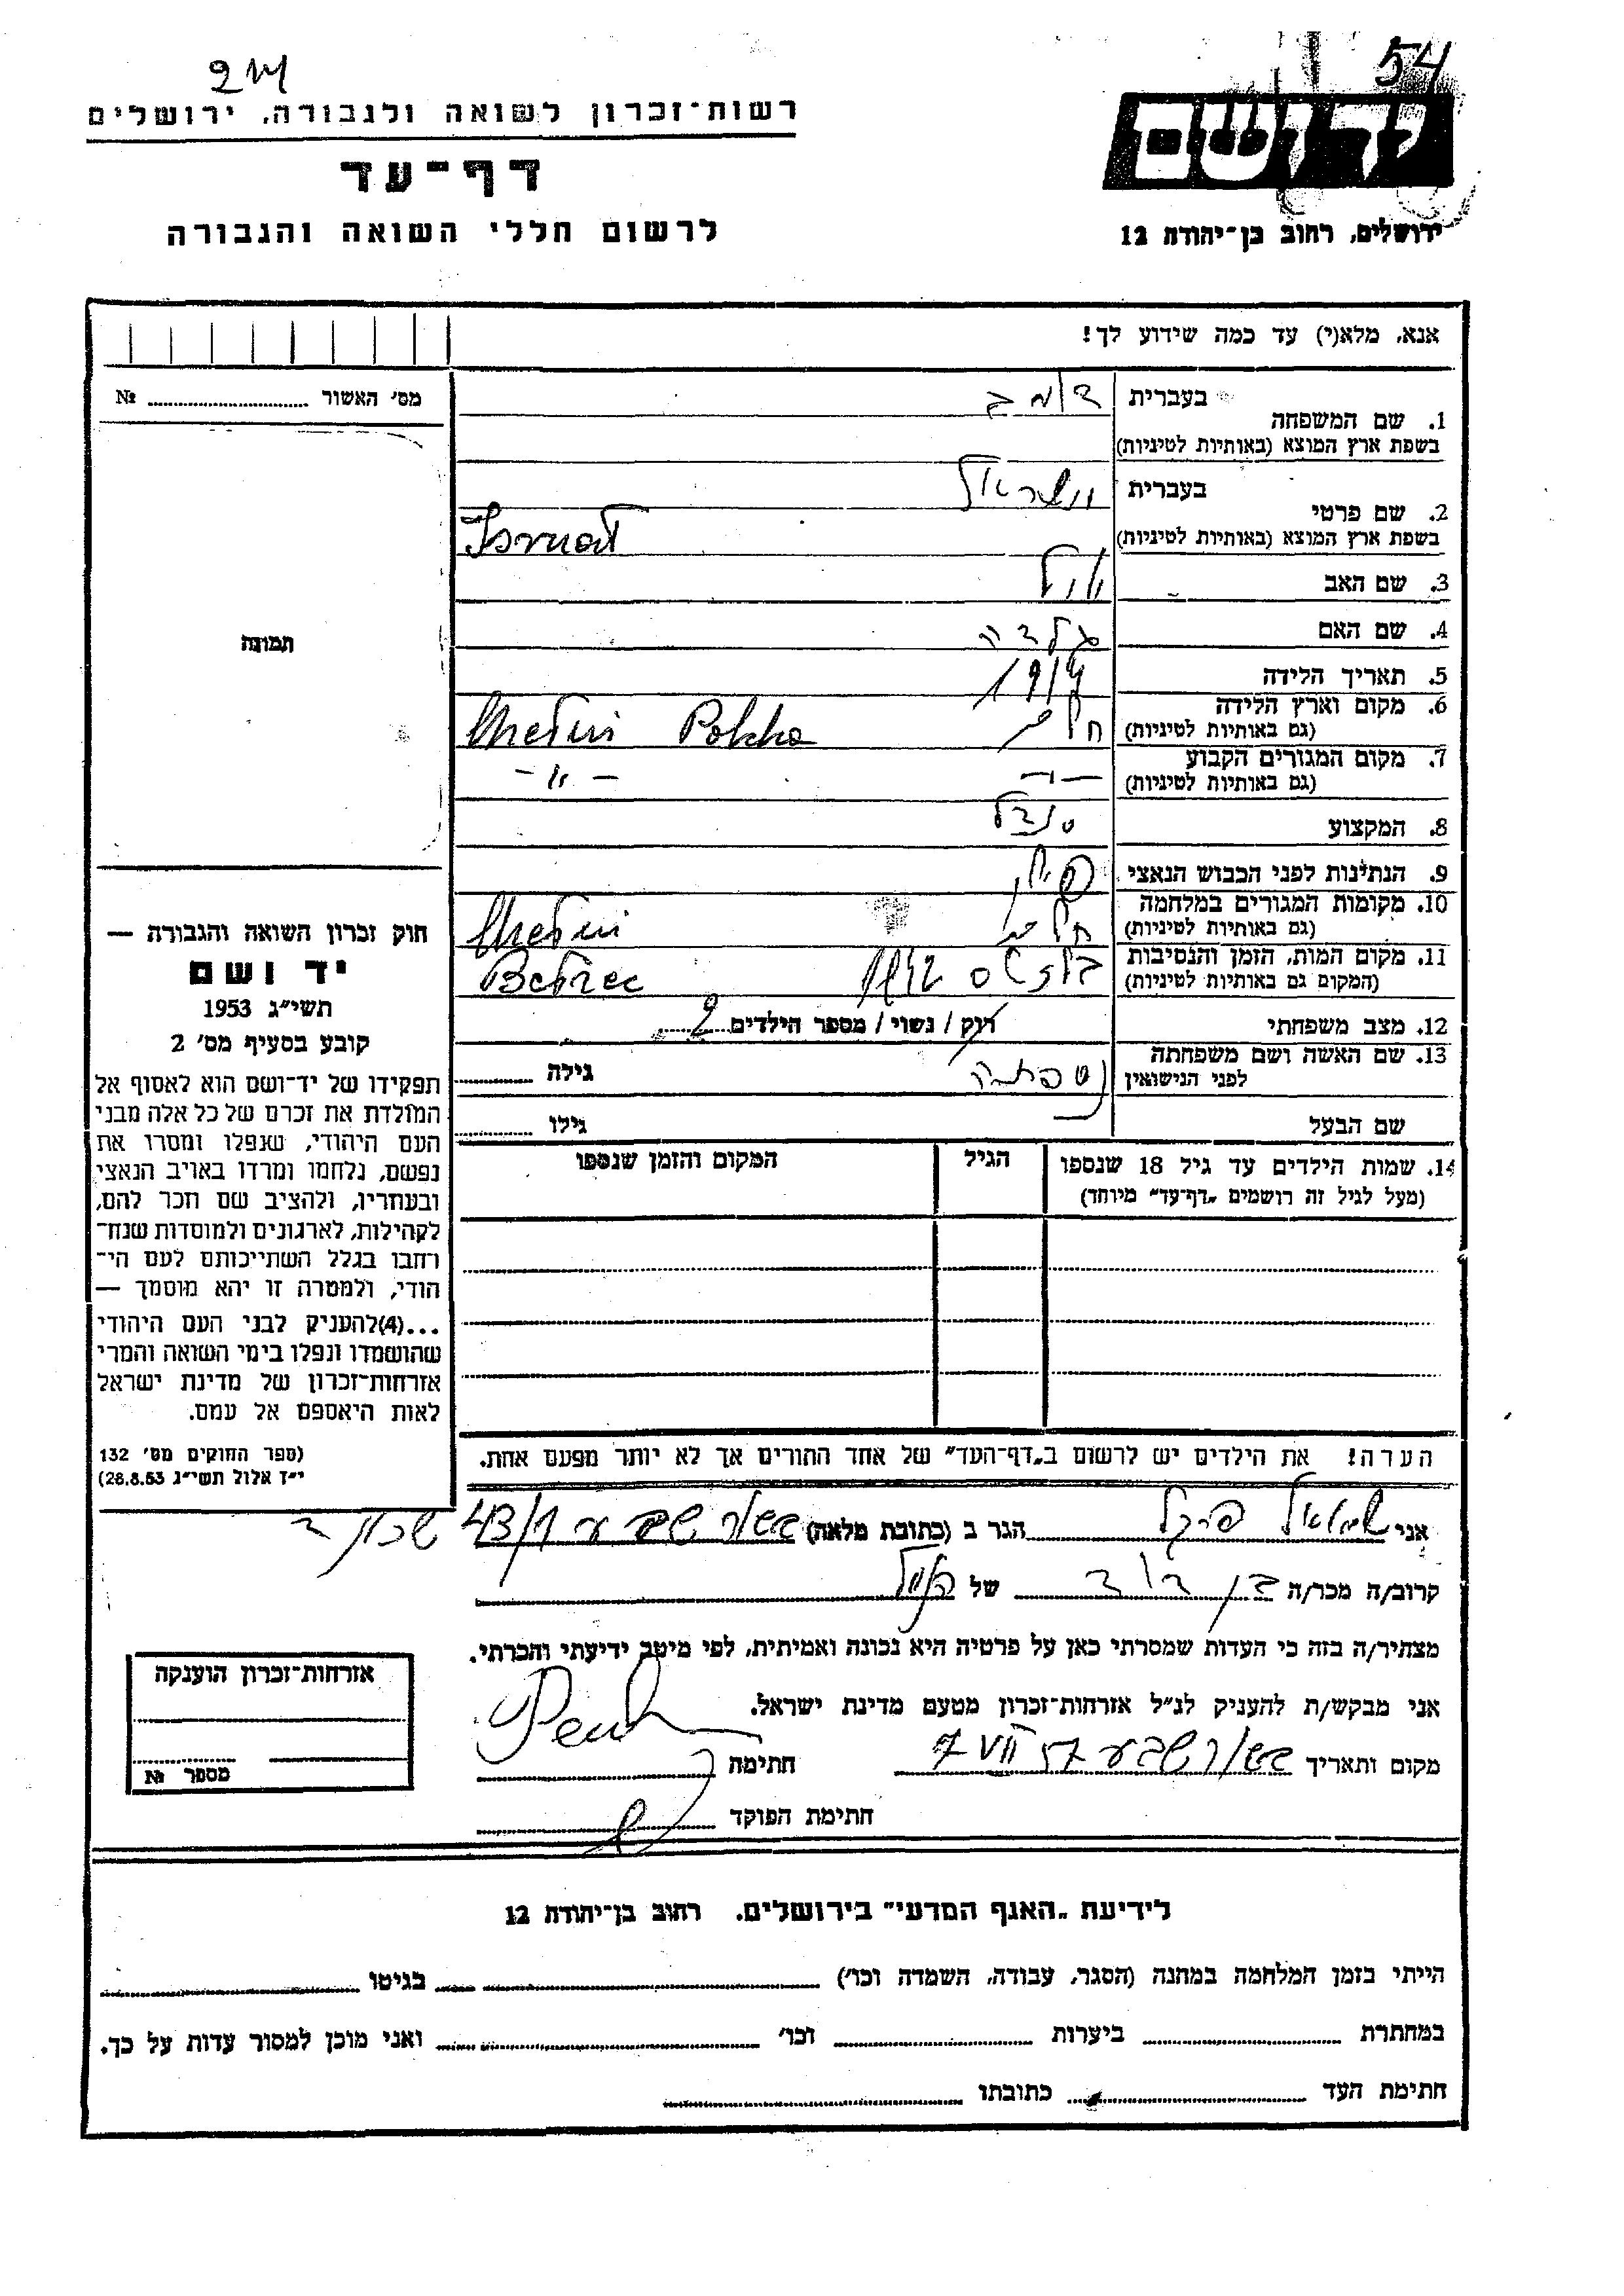 54
214
יד ושם
רשות-זכרון לשואה ולגבורה, ירושלים
דף-עד
לרשום חללי השואה והגבורה
ירושלים, רחוב בן-יהודה 12
אנא, מלא(י) עד כמה שידוע לך!
מס' האשור № 
1. שם המשפחה
בעברית
בשפת ארץ המוצא (באותיות לטיניות)
2. שם פרטי
בעברית
בשפת ארץ המוצא (באותיות לטיניות)
Israel
3. שם האב
4. שם האם
5. תאריך הלידה
6. מקום וארץ הלידה
(גם באותיות לטיניות)
חלם Chełm Polska
7. מקום המגורים הקבוע
(גם באותיות לטיניות)
— " — - " -
8. המקצוע
9. הנתינות לפני הכבוש הנאצי
פולין
10. מקומות המגורים במלחמה
(גם באותיות לטיניות)
11. מקום המות, הזמן והנסיבות
(המקום גם באותיות לטיניות)
1942 Bełzec
12. מצב משפחתי רוק / נשוי / מספר הילדים 2
13. שם האשה ושם משפחתה
לפני הנישואין
גילה
שם הבעל גילו
14. שמות הילדים עד גיל 18 שנספו
(מעל לגיל זה רושמים „דף-עד" מיוחד)
הגיל
המקום והזמן שנספו
הערה! את הילדים יש לרשום ב„דף-העד" של אחד ההורים אך לא יותר מפעם אחת.
תמונה
חוק זכרון השואה והגבורה —
יד ושם
תשי"ג 1953
קובע בסעיף מס' 2
תפקידו של יד-ושם הוא לאסוף אל
המולדת את זכרם של כל אלה מבני
העם היהודי, שנפלו ומסרו את
נפשם, נלחמו ומרדו באויב הנאצי
ובעוזריו, ולהציב שם וזכר להם,
לקהילות, לארגונים ולמוסדות שנח-
רבו בגלל השתייכותם לעם הי-
הודי, ולמטרה זו יהא מוסמך —
...(4)להעניק לבני העם היהודי
שהושמדו ונפלו בימי השואה והמרי
אזרחות-זכרון של מדינת ישראל
לאות היאספם אל עמם.
(ספר החוקים מס' 132
י"ז אלול תשי"ג 28.8.53)
אני שמואל פרנקל הגר ב (כתובת מלאה) באר שבע 43/1
קרוב/ה מכר/ה בן דוד של הנ"ל
מצהיר/ה בזה כי העדות שמסרתי כאן על פרטיה היא נכונה ואמיתית, לפי מיטב ידיעתי והכרתי.
אני מבקש/ת להעניק לנ"ל אזרחות-זכרון מטעם מדינת ישראל.
מקום ותאריך באר שבע 7 VII 57 חתימה
חתימת הפוקד
אזרחות-זכרון הוענקה
מספר №
לידיעת „האגף המדעי" בירושלים. רחוב בן-יהודה 12
הייתי בזמן המלחמה במחנה (הסגר, עבודה, השמדה וכו') בגיטו
במחתרת ביערות וכו' ואני מוכן למסור עדות על כך.
חתימת העד כתובתו